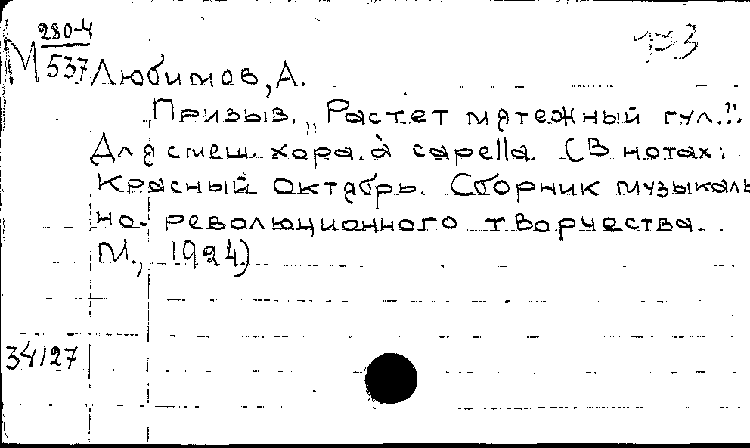 М 280-4
537
193
Любимов, А.
Призыв. „Растет мятежный гул.."
Для смеш. хора à capella. (В нотах:
Красный Октябрь. Сборник музыкаль
но-революционного творчества.
М., 1924)
34127